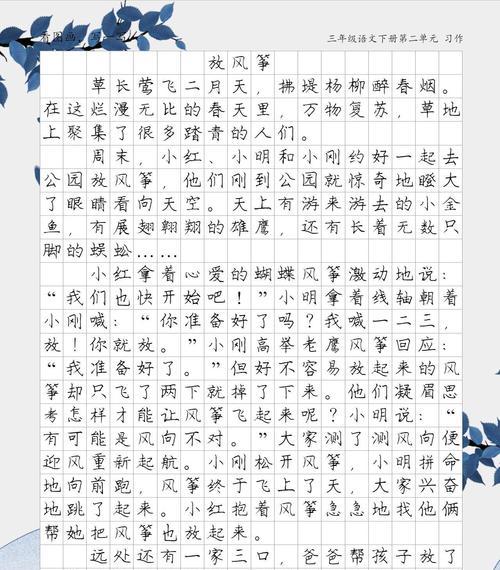 看图画，写一写
三年级语文下册第二单元 习作
放风筝
草长莺飞二月天，拂堤杨柳醉春烟。
在这烂漫无比的春天里，万物复苏，草地
上聚集了很多踏青的人们。
周末，小红、小明和小刚约好一起去
公园放风筝，他们刚到公园就惊奇地瞪大
了眼睛看向天空。天上有游来游去的小金
鱼，有展翅翱翔的雄鹰，还有长着无数只
脚的蜈蚣……
小红拿着心爱的蝴蝶风筝激动地说：
“我们也快开始吧！”小明拿着线轴朝着
小刚喊：“你准备好了吗？我喊一二三，
放！你就放。”小刚高举老鹰风筝回应：
“我准备好了。”但好不容易放起来的风
筝却只飞了两下就掉了下来。他们凝眉思
考怎样才能让风筝飞起来呢？小明说：“
有可能是风向不对。”大家测了测风向便
迎风重新起航。小刚松开风筝，小明拼命
地向前跑，风筝终于飞上了天，大家兴奋
地跳了起来。小红抱着风筝急急地找他俩
帮她把风筝也放起来。
远处还有一家三口，爸爸帮孩子放了